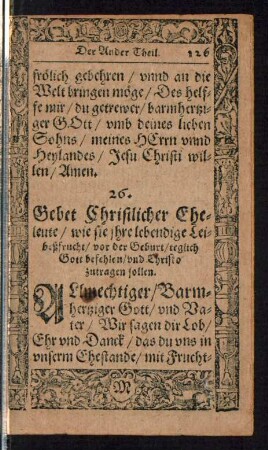 Der Ander Theil. 126
frölich gebehren / vnnd an die
Welt bringen möge / Des helf-
fe mir / du getrewer / barmhertzi-
ger GOtt / vmb deines lieben
Sohns / meines HErrn vnnd
Heylandes / Jesu Christi wil-
len / Amen.
26.
Gebet Christlicher Ehe-
leute / wie sie jhre lebendige Lei-
beßfrucht / vor der Geburt / teglich
Gott befehlen / vnd Christo
zutragen sollen.
ALlmechtiger / Barm-
hertziger Gott / vnd Va-
ter / Wir sagen dir Lob /
Ehr vnd Danck / das du vns in
vnserm Ehestande / mit Frucht-
M